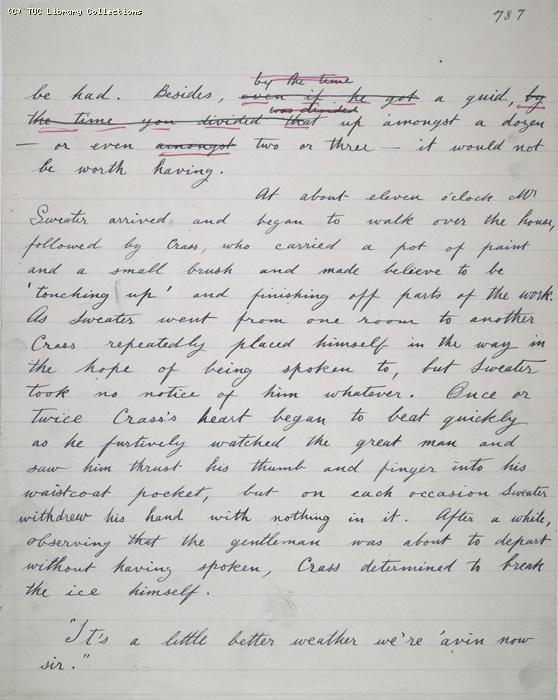 (C) TUC Library Collections
787
by the time
be had. Besides, even if he got a quid, by
was divided
the time you divided that up amongst a dozen
— or even amongst two or three — it would not
be worth having.
At about eleven o'clock Mr
Sweater arrived and began to walk over the house,
followed by Crass, who carried a pot of paint
and a small brush and made believe to be
'touching up' and finishing off parts of the work.
As Sweater went from one room to another
Crass repeatedly placed himself in the way in
the hope of being spoken to, but Sweater
took no notice of him whatever. Once or
twice Crass's heart began to beat quickly
as he furtively watched the great man and
saw him thrust his thumb and finger into his
waistcoat pocket, but on each occasion Sweater
withdrew his hand with nothing in it. After a while,
observing that the gentleman was about to depart
without having spoken, Crass determined to break
the ice himself.
"It's a little better weather we're 'avin now
sir."